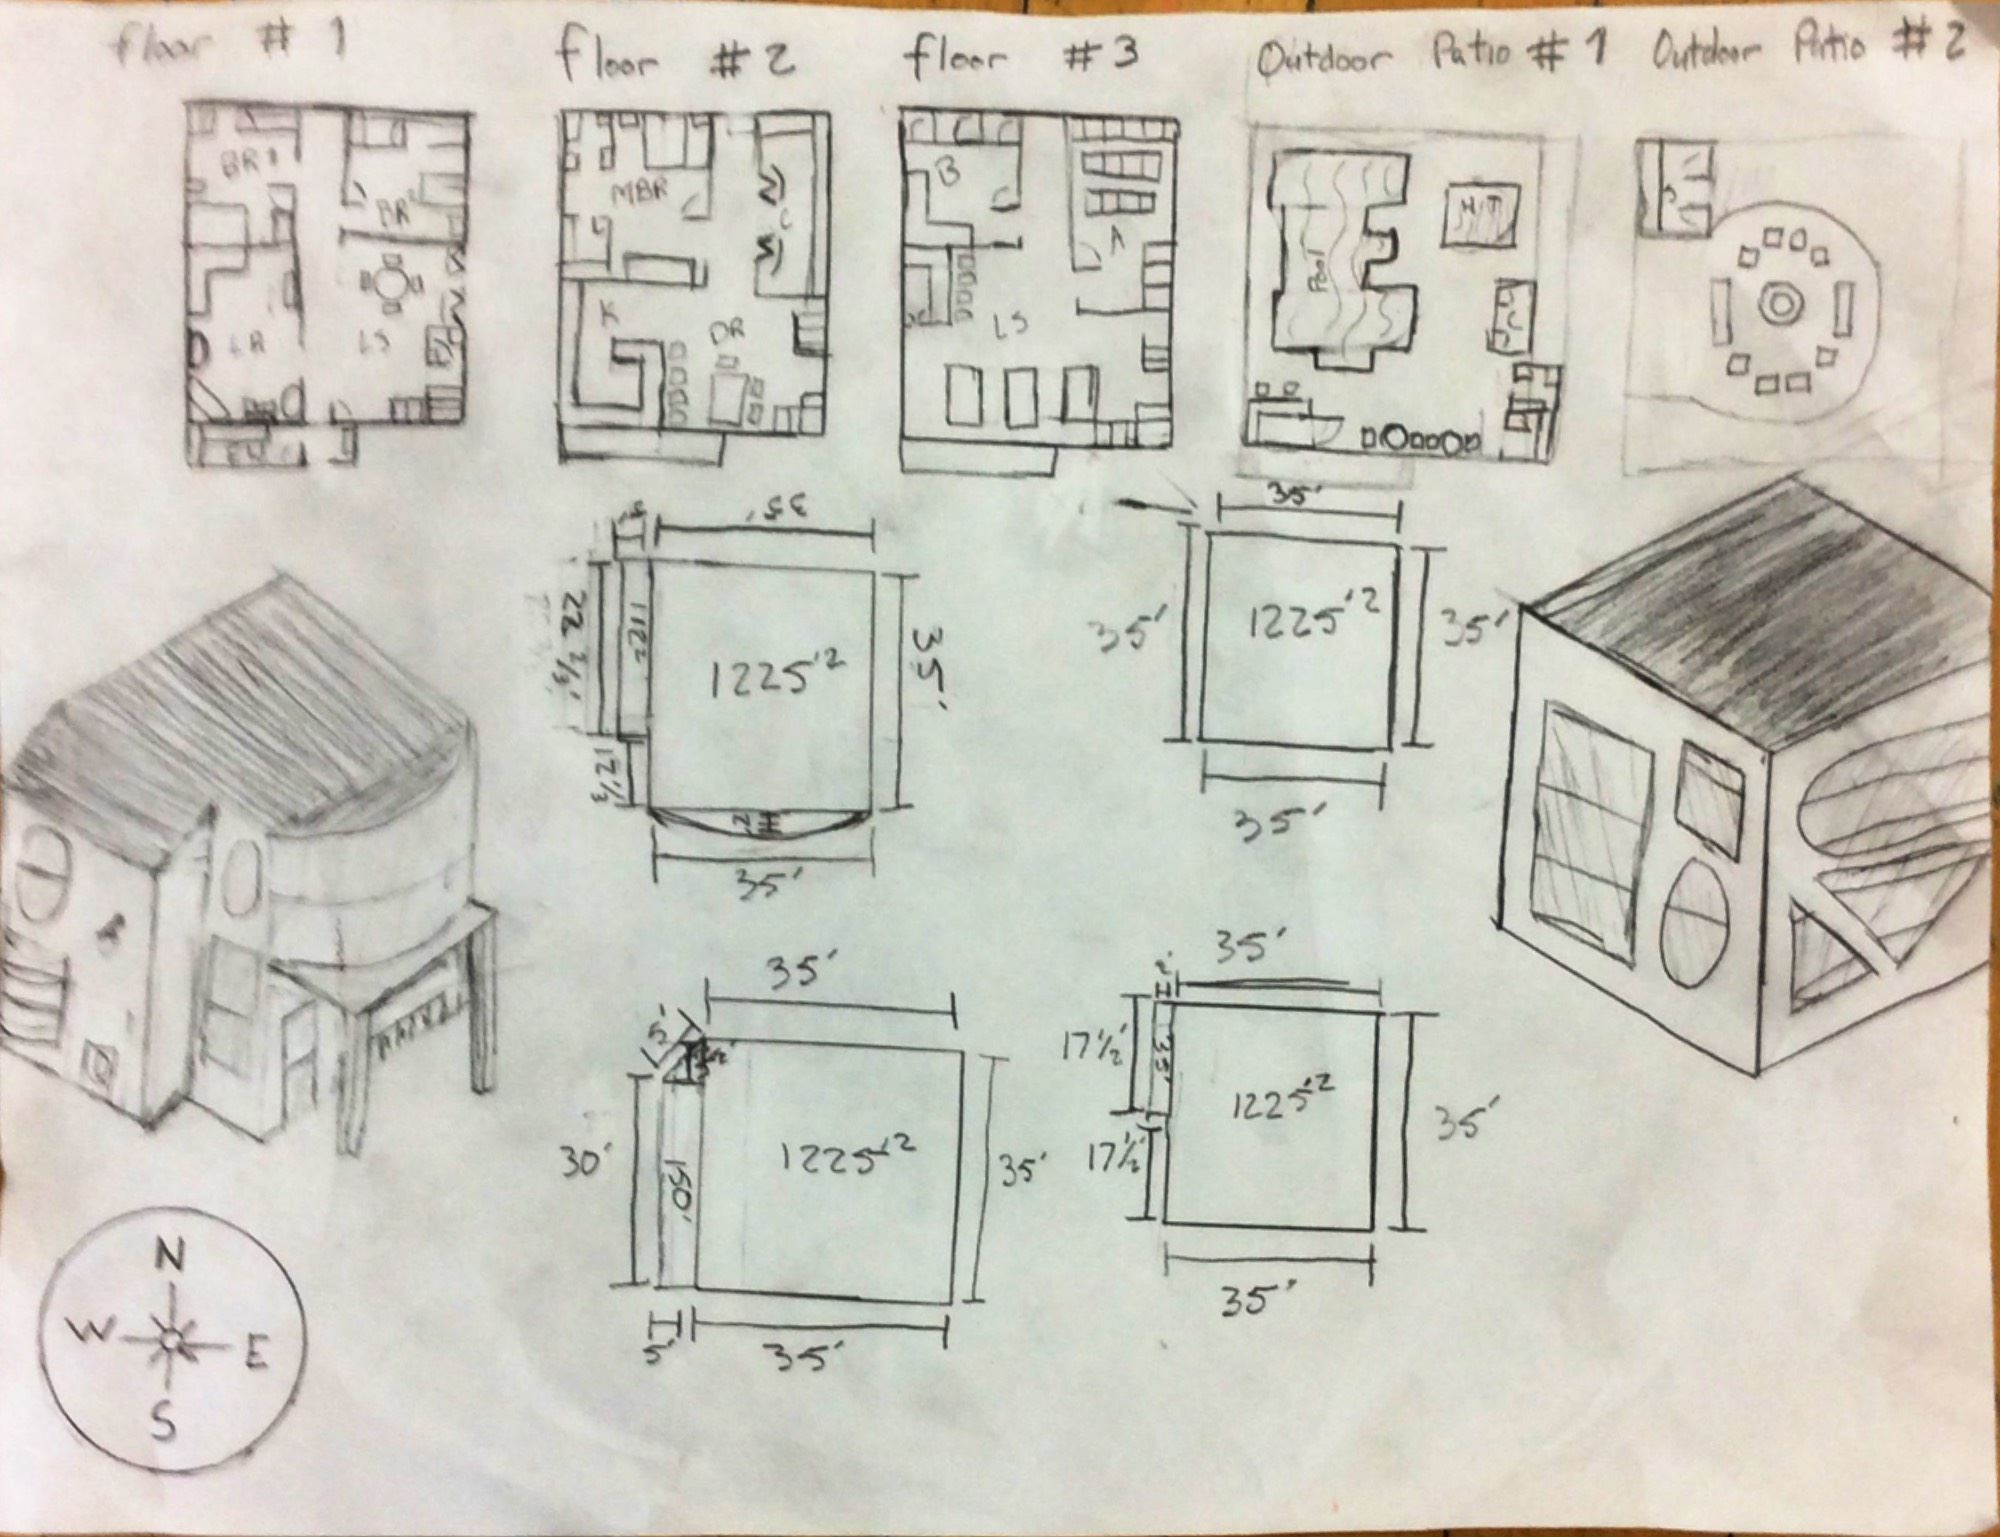 floor # 1
floor # 2
floor # 3
Outdoor Patio # 1
Outdoor Patio # 2
BR
BR
LR
LS
MBR
C
K
DR
B
A
LS
Pool
HT
35'
22 2/3'
112'²
1225'²
35'
12 1/3
35'
35'
35'
1225'²
35'
35'
35'
5'
30'
150'
1225'²
35'
5'
35'
35'
2'
17½'
35'
1225'²
35'
17½'
35'
N
W
E
S